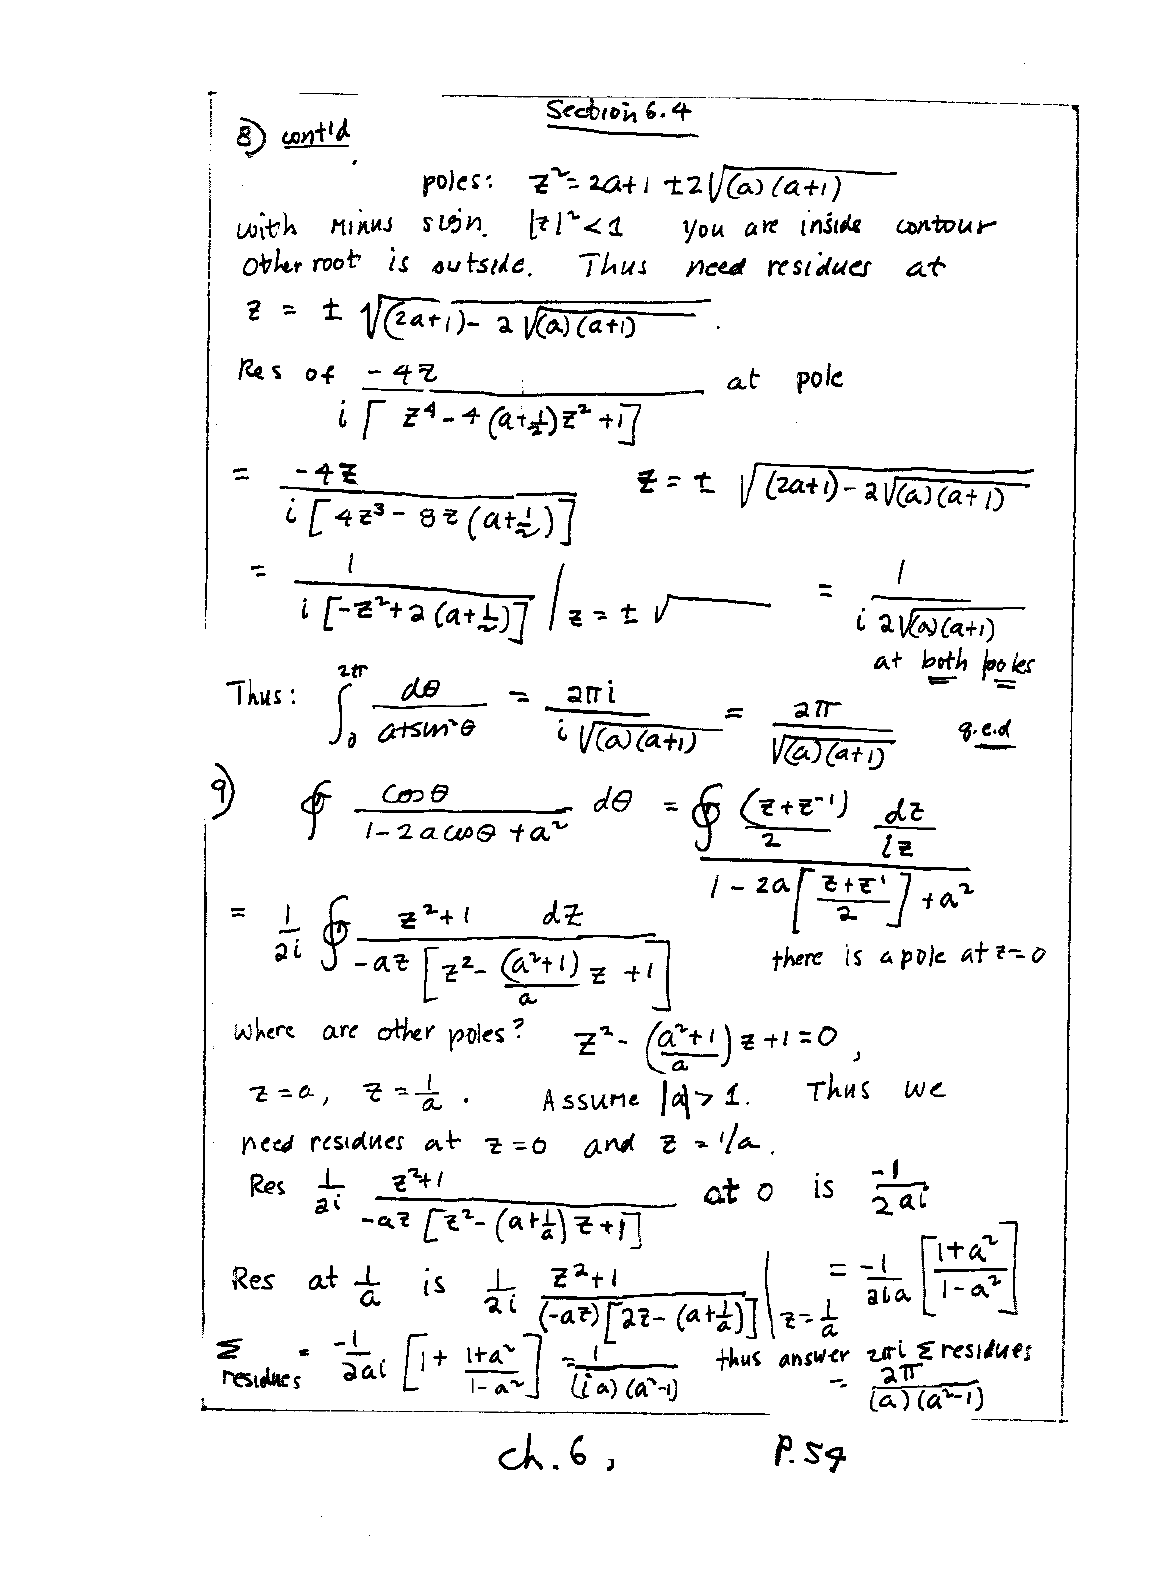 Section 6.4
8) cont'd
poles: z² = 2a+1 ± 2√(a)(a+1)
with minus sign. |z|² < 1 you are inside contour
Other root is outside. Thus need residues at
z = ± √(2a+1) - 2√(a)(a+1) .
Res of -4z / i[z⁴ - 4(a+½)z² + 1] at pole
= -4z / i[4z³ - 8z(a+½)] z = ± √(2a+1) - 2√(a)(a+1)
= 1 / i[-z² + 2(a+½)] | z = ± √ = 1 / i 2√(a)(a+1)
at both poles
Thus: ∫₀^2π dθ / a+sin²θ = 2πi / i√(a)(a+1) = 2π / √(a)(a+1) q.e.d
9) ∮ cosθ / 1-2a cosθ + a² dθ = ∮ (z+z⁻¹)/2 dz/iz / 1 - 2a[z+z⁻¹ / 2] + a²
= 1/2i ∮ z²+1 dz / -az[z² - (a²+1)/a z + 1] there is a pole at z=0
Where are other poles? z² - (a²+1 / a) z + 1 = 0 ,
z = a, z = 1/a . Assume |a| > 1. Thus we
need residues at z = 0 and z = 1/a.
Res 1/2i z²+1 / -az[z² - (a+1/a)z + 1] at 0 is -1/2ai
Res at 1/a is 1/2i z²+1 / (-az)[2z - (a+1/a)] | z = 1/a = -1/2ia [1+a² / 1-a²]
Σ residues = -1/2ai [1 + 1+a² / 1-a²] = 1 / (ia)(a²-1) thus answer 2πi Σ residues
= 2π / (a)(a²-1)
Ch. 6, P. 54